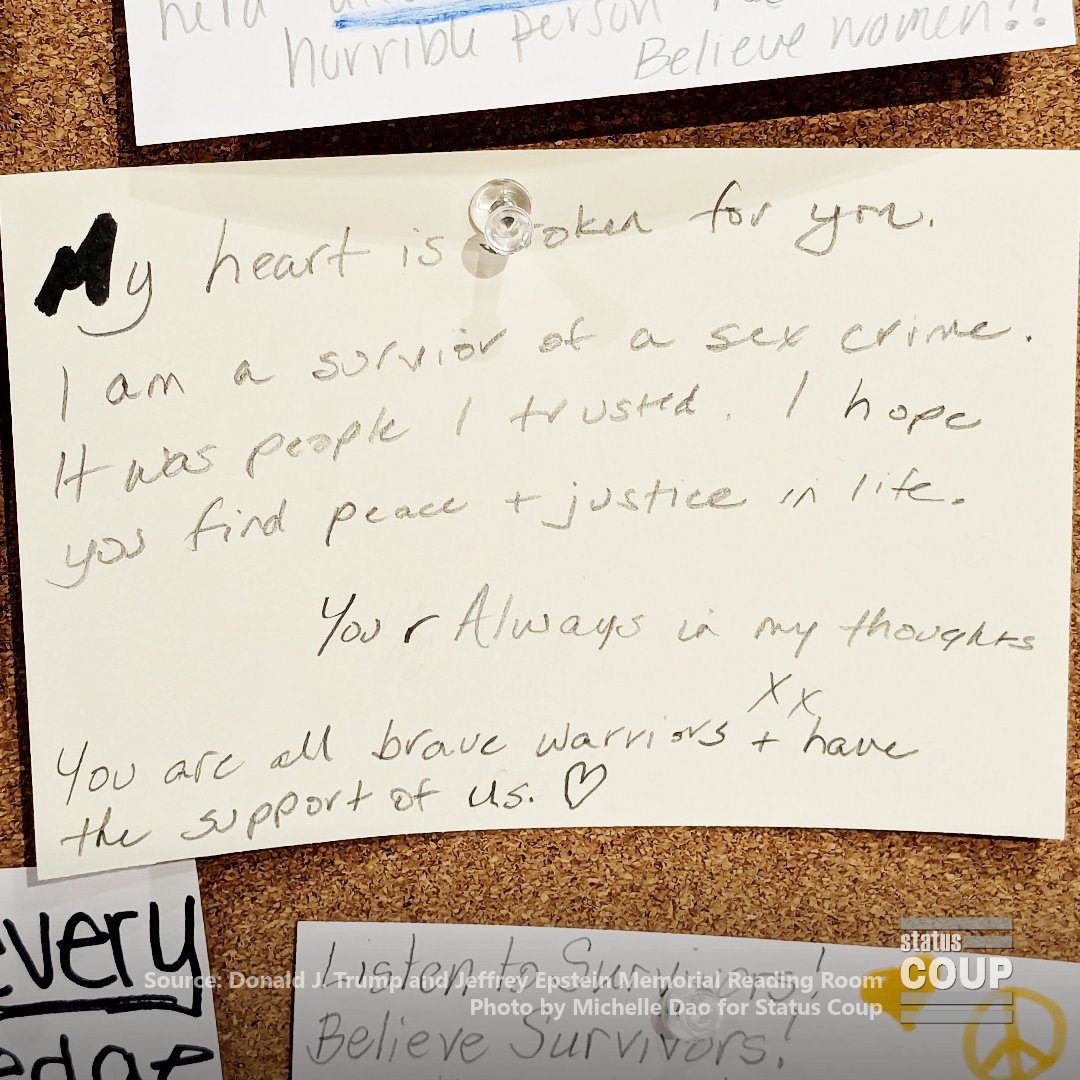 held
horrible person
Believe women!!
My heart is broken for you.
I am a survior of a sex crime.
It was people I trusted. I hope
you find peace + justice in life.
Your Always in my thoughts
xx
You are all brave warriors + have
the support of us. ♡
every
edge
Listen to Survivors!
Believe Survivors!
Source: Donald J. Trump and Jeffrey Epstein Memorial Reading Room
Photo by Michelle Dao for Status Coup
status
COUP